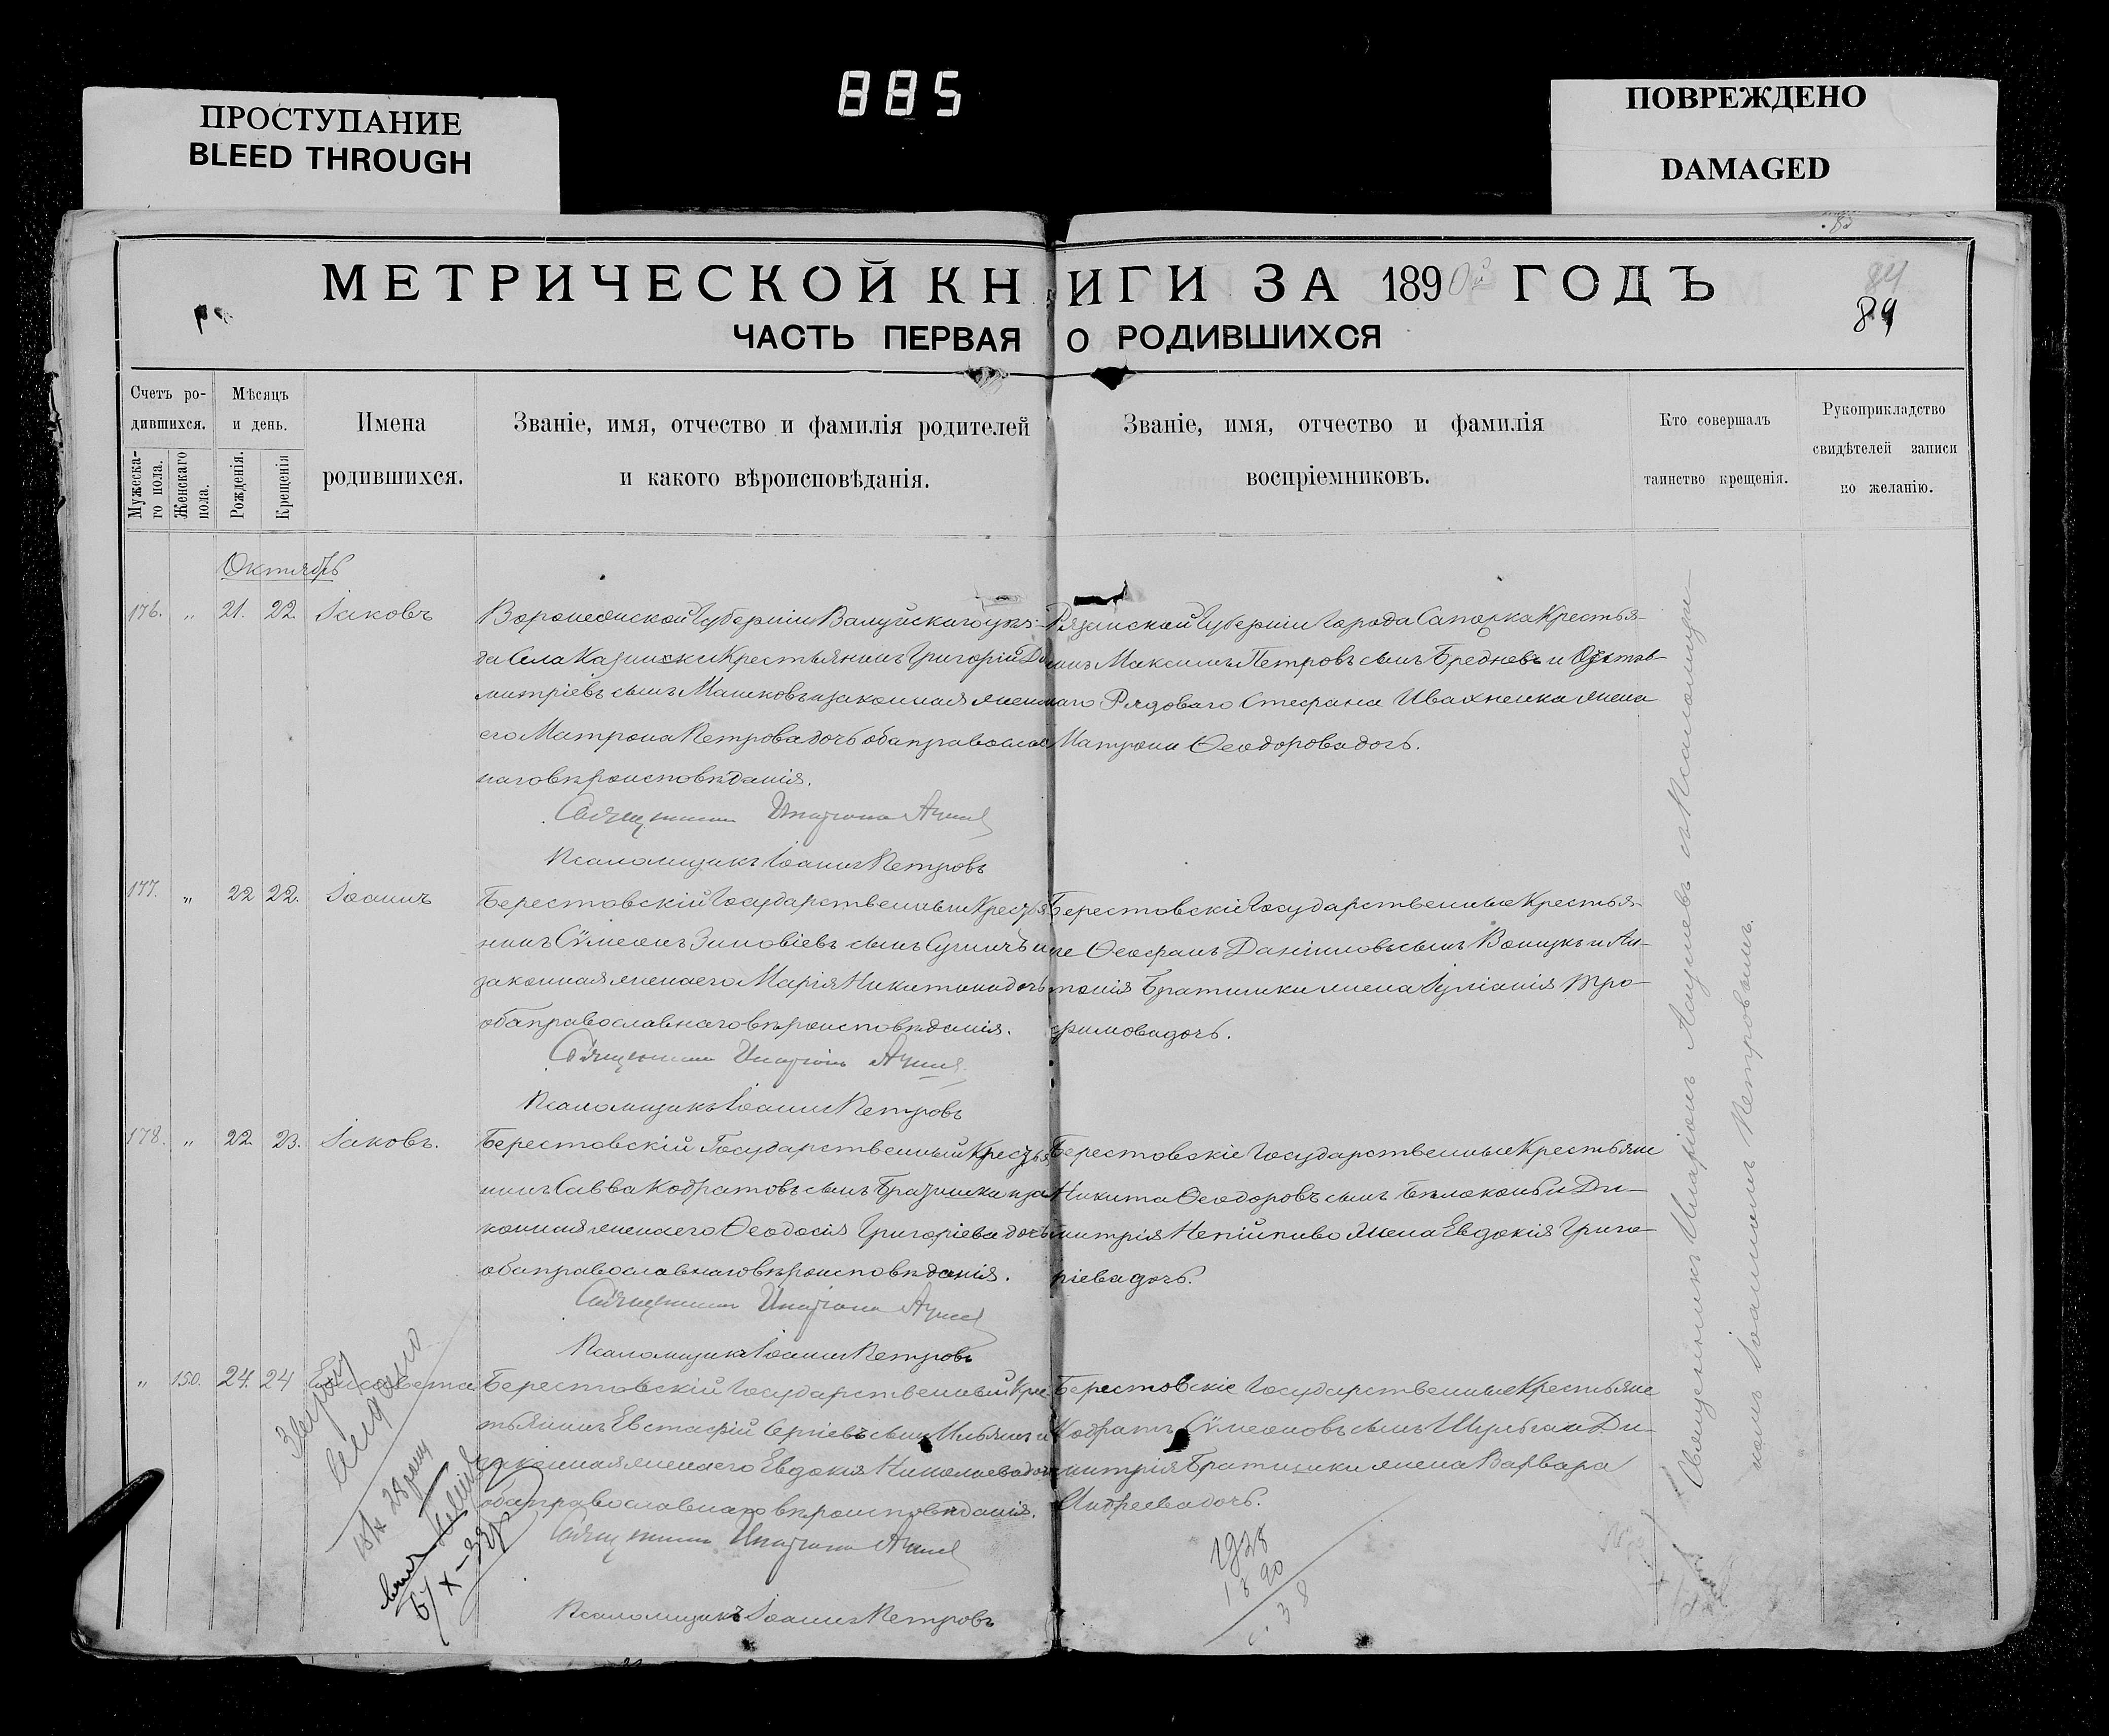 885
ПРОСТУПАНИЕ
BLEED THROUGH
ПОВРЕЖДЕНО
DAMAGED
МЕТРИЧЕСКОЙ КНИГИ ЗА 1890й ГОДЪ
84
84
ЧАСТЬ ПЕРВАЯ О РОДИВШИХСЯ
Счетъ ро-
дившихся.
Мужеска-
го пола.
Женскаго
пола.
Мѣсяцъ
и день.
Рожденія.
Крещенія
Имена
родившихся.
Званіе, имя, отчество и фамилія родителей
и какого вѣроисповѣданія.
Званіе, имя, отчество и фамилія
воспріемниковъ.
Кто совершалъ
таинство крещенія.
Рукоприкладство
свидѣтелей записи
по желанію.
Октябрь
176. " 21. 22. Іаковъ
Воронежской Губерніи Валуйскаго уѣз-
да Села Казинки Крестьянинъ Григорій Ди
митріевъ сынъ Машковъ и законная жена
его Матрона Петрова дочь оба православ
наго вѣроисповѣданія.
Священникъ
Псаломщикъ Іоаннъ Петровъ
Рязанской Губерніи Города Сапожка Крестья-
нинъ Максимъ Петровъ сынъ Бредневъ и Отстав-
наго Рядоваго Стефана Ивахненка жена
Матрона Ѳеодорова дочь.
177. " 22 22. Іоаннъ
Берестовскій Государственный Крестья
нинъ Сѵмеонъ Зиновіевъ сынъ и
законная жена его Марія Никитина дочь
оба православнаго вѣроисповѣданія.
Священникъ
Псаломщикъ Іоаннъ Петровъ
Берестовскіе Государственные Крестья-
не Ѳеофанъ Даніиловъ сынъ и Ан-
тонія Братишки жена Іуліанія Тро-
фимова дочь.
178. " 22. 23. Іаковъ.
Берестовскій Государственный Крестья
нинъ Савва Кодратовъ сынъ и за
конная жена его Ѳеодосія Григоріева дочь
оба православнаго вѣроисповѣданія.
Священникъ
Псаломщикъ Іоаннъ Петровъ
Берестовскіе Государственные Крестьяне
Никита Ѳеодоровъ сынъ Бѣлоконь и Ди-
митрія Непійпиво жена Евдокія Григо-
ріева дочь.
" 150. 24. 24 Елисавета
Берестовскій Государственный Крес
тьянинъ Евстафій Сергіевъ сынъ и
законная жена его Евдокія Николаева дочь
оба православнаго вѣроисповѣданія.
Священникъ
Псаломщикъ Іоаннъ Петровъ
Берестовскіе Государственные Крестьяне
Кодратъ Сѵмеоновъ сынъ Шульга и Ди-
митрія Братишки жена Варвара
Андреева дочь.
Священникъ съ Псаломщи-
комъ Іоанномъ Петровымъ.
6/X-38
1938
1890